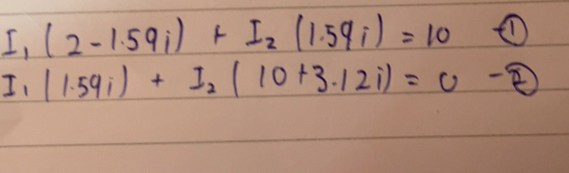 I₁ (2-1.59i) + I₂ (1.59i) = 10 -①
I₁ (1.59i) + I₂ ( 10+3.12i) = 0 -②